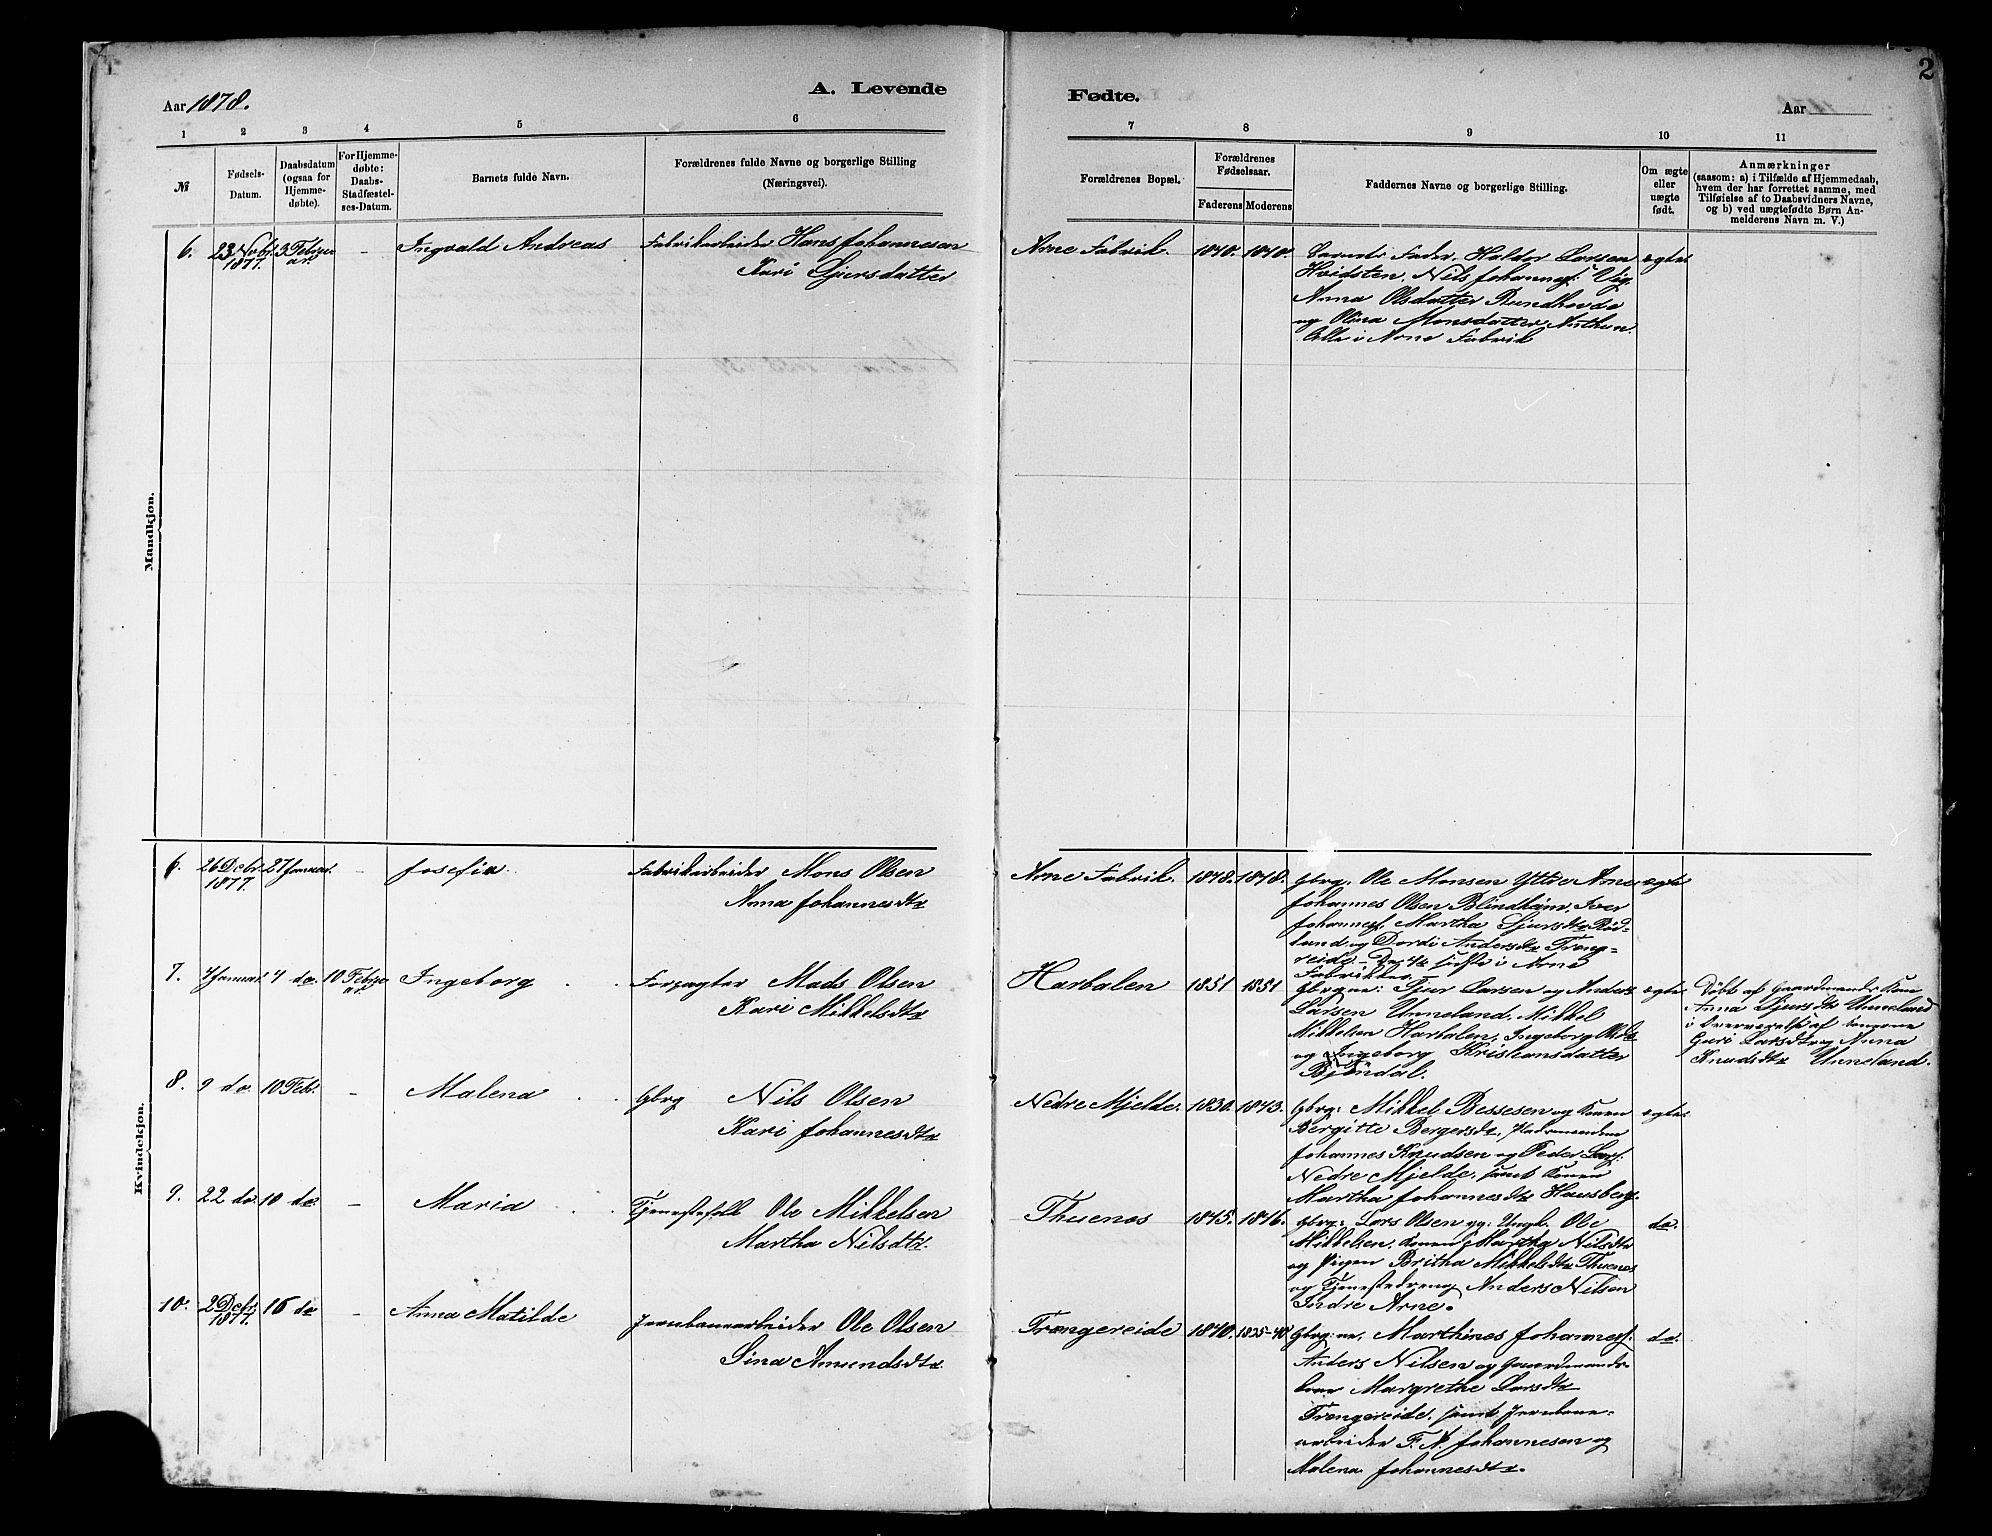 2
Aar 1878.
A. Levende
Fødte.
Aar
1 2 3 4 5 6
7 8 9 10 11
№
Fødsels-
Datum.
Daabsdatum
(ogsaa for
Hjemme-
døbte).
For Hjemme-
døbte:
Daabs-
Stadfæstel-
ses-Datum.
Barnets fulde Navn.
Forældrenes fulde Navne og borgerlige Stilling
(Næringsvei).
Forældrenes Bopæl.
Forældrenes
Fødselsaar.
Faderens Moderens
Faddernes Navne og borgerlige Stilling.
Om ægte
eller
uægte
født.
Anmærkninger
(saasom: a) i Tilfælde af Hjemmedaab,
hvem der har forrettet samme, med
Tilføielse af to Daabsvidners Navne,
og b) ved uægtefødte Børn An-
melderens Navn m. V.)
Mandkjøn.
6. 23 Novbr. 1877. 3 Februar. – Ingvald Andreas
Fabrikarbeider Hans Johannesen
Kari Sjursdatter
Arne Fabrik. 1840. 1840.
Barnets Fader, Haldor Larsen
Hvidsten, Nils Johannes. Vig,
Anna Olsdatter Rundhovde
og Olina Monsdatter
Alle i Arne Fabrik
ægte
Kvindekjøn.
6. 26 Decbr. 1877. 27 Januar. – Josefia.
Fabrikarbeider Mons Olsen
Anna Johannesdtr
Arne Fabrik. 1848. 1848.
Gbrg. Ole Monsen Yttre Arne
Johannes Olsen Blindheim, Iver
Johannes. Martha Sjursdtr Rød-
land og Dordi Andersdtr Træng-
reide – De 4 sidste i Arne
Fabrikker –
ægte
7. 4 Januar. 4 do 10 Februar. Ingeborg
Forpagter Mads Olsen
Kari Mikkelsdtr
Harbalen 1851 1851
Gbrgne: Sjur Larsen og Anders
Larsen Unneland, Mikkel
Mikkelsen Harbalen, Ingeborg Olsdtr
og Ingeborg Kristiansdatter
Bjøndal.
ægte
Døbt af Gaardmands Kone
Anna Sjursdtr Unneland
i Overværelse af Konerne
Guri Larsdtr og Anna
Knudsdtr Unneland.
8. 9 do 10 Feb. – Malena
Gbrg Nils Olsen
Kari Johannesdtr
Nedre Mjelde. 1830. 1843.
Gbrg: Mikkel Bessesen og Konen
Bergitte Bergersdtr,
Johannes Knudsen og Peder Lars.
Nedre Mjelde, samt Konen
Martha Johannesdtr Hausberg.
ægte
9. 22 do. 10 do. – Maria
Tjenestefolk Ole Mikkelsen
Martha Nilsdtr.
Thuenes 1845. 1846.
Gbrg: Lars Olsen og Ungk. Ole
Mikkelsen, Konen Martha Nilsdtr
og Pigen Britha Mikkelsdtr Thuenes
og Tjenestedreng Anders Nilsen
Indre Arne.
do.
10. 2 Decbr. 1877. 16 do – Anna Matilde
Jernbanearbeider Ole Olsen
Sina Amundsdtr
Trængereide 1840. 1835-40
Gbrg:ne, Marthines Johannes.
Anders Nilsen og Gaardmands-
kone Margrethe Larsdtr
Trængereide, samt Jernbane-
arbeider F. N. Johannesen og
Malena Johannesdtr.
do.